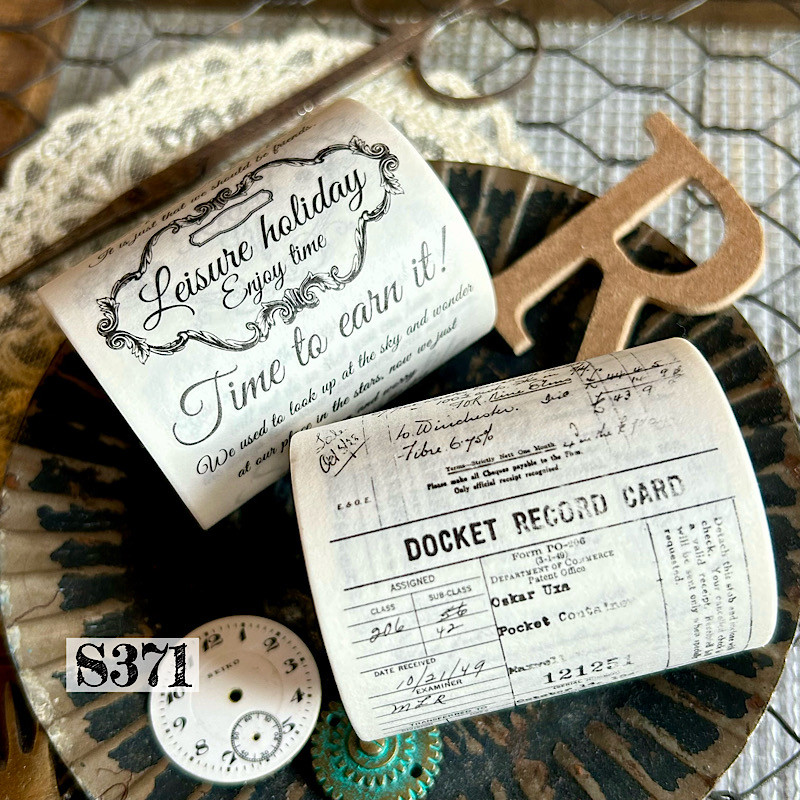 It is just that we should be friends.
Leisure holiday
Enjoy time
Time to earn it!
We used to look up at the sky and wonder
at our place in the stars, now we just
and worry
to Winchester.
Fibre 6 75%
Terms—Strictly Nett One Month
Please make all Cheques payable to the Firm.
Only official receipt recognised
E. & O. E.
DOCKET RECORD CARD
Form PO-206
(3-1-49)
DEPARTMENT OF COMMERCE
Patent Office
ASSIGNED
CLASS
SUB-CLASS
206
56
42
Oskar Uxa
Pocket Container
Maxwell
DATE RECEIVED
10/21/49
EXAMINER
MLR
TRANSFERRED TO
121251
Detach this stub and
check. Your cancelled
a valid receipt.
will be sent only when
requested.
SEIKO
12
1
2
3
4
8
9
10
S371
R